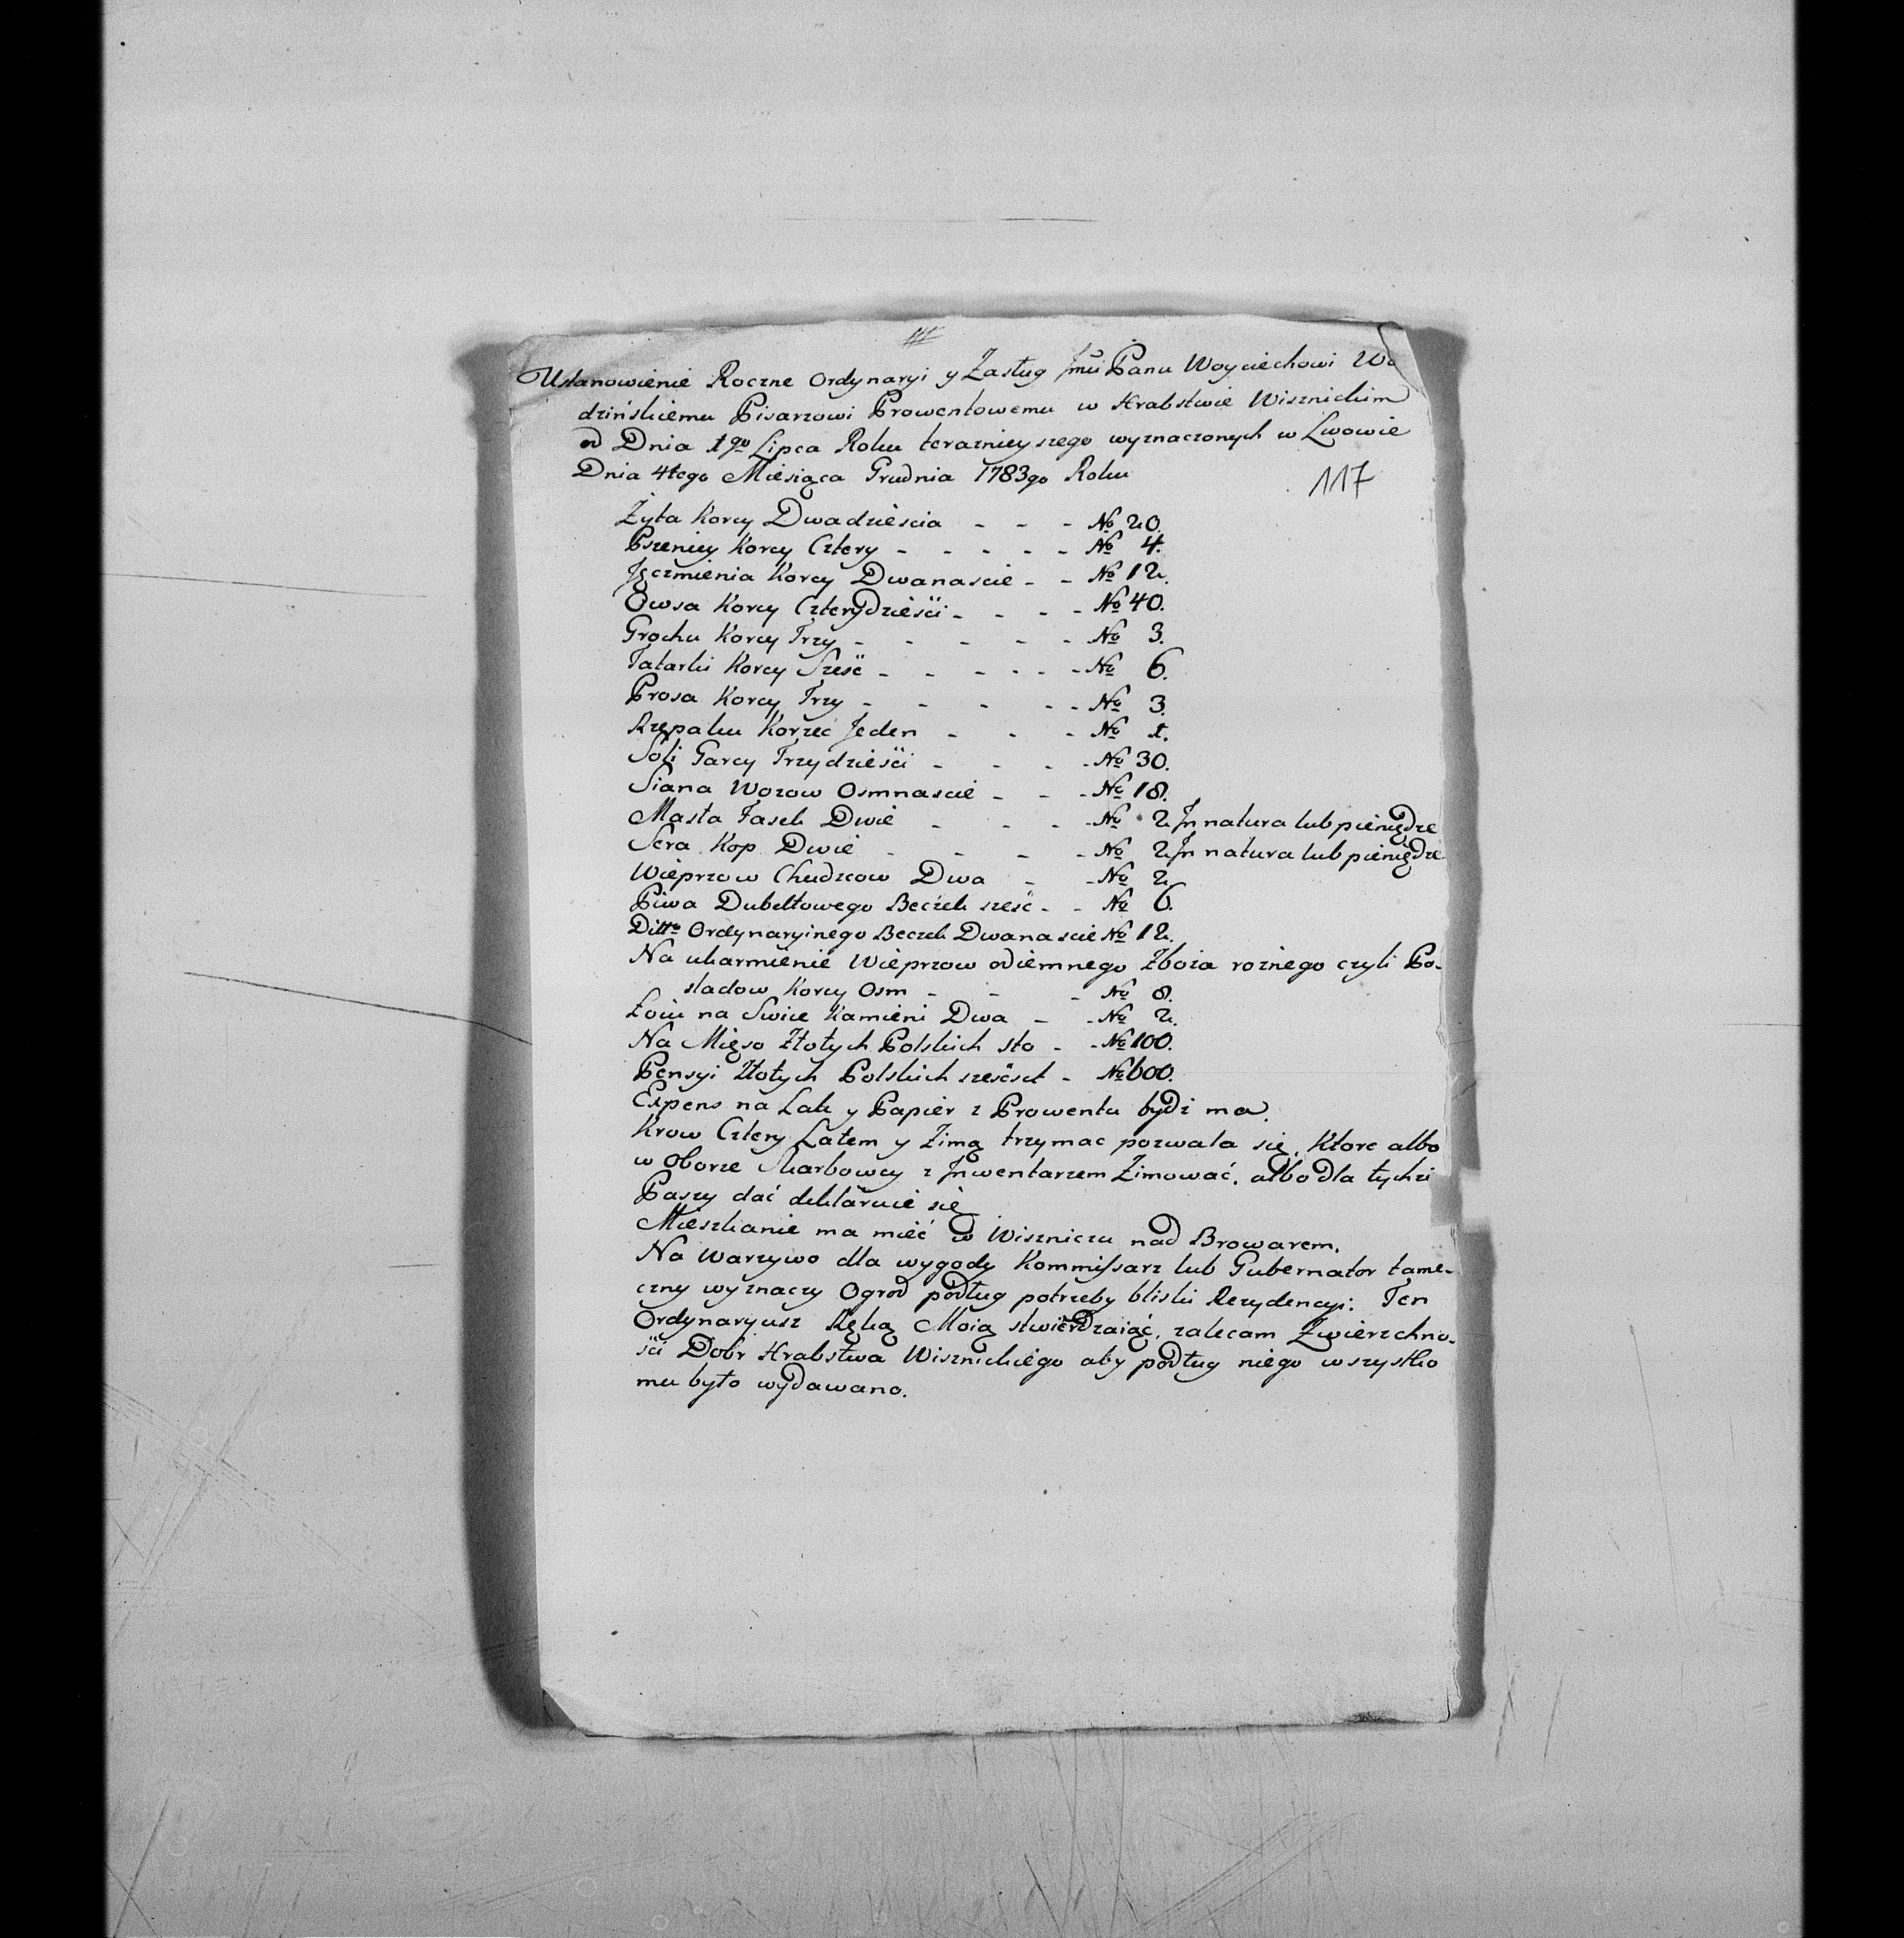 Ustanowienie Roczne Ordynaryi y Zasług Jmu Panu Woyciechowi Wo
dzińskiemu Pisarzowi Prowentowemu w Hrabstwie Wisznickim
od Dnia 1go Lipca Roku teraznieyszego wyznaczonych w Lwowie
Dnia 4tego Miesiąca Grudnia 1783go Roku
117
Żyta Korcy Dwadzieścia - - - No 20.
Pszenicy Korcy Cztery - - - - - No 4.
Jęczmienia Korcy Dwanascie - - No 12.
Owsa Korcy Czterydzieści - - - - No 40.
Grochu Korcy Trzy - - - - - No 3.
Tatarki Korcy Sześć - - - - - - No 6.
Prosa Korcy Trzy - - - - - No 3.
Rzepaku Korzec Jeden - - - No 1.
Soli Garcy Trzydzieści - - - - No 30.
Siana Wozow Osmnascie - - - No 18.
Masła Fasek Dwie - - - - No 2. In natura lub pieniędze
Sera Kop Dwie - - - - No 2. In natura lub pieniędze
Wieprzow Chudzcow Dwa - - No 2
Piwa Dubeltowego Beczek sześć - - No 6.
Ditto Ordynaryinego Beczek Dwanascie No 12.
Na ukarmienie Wieprzow odiemnego Zboża rożnego czyli Po-
sladow Korcy Osm - - - No 8.
Łoiu na Swice Kamieni Dwa - - No 2.
Na Mięso Złotych Polskich sto - - No 100.
Pensyi Złotych Polskich sześćset - No 600.
Expens na Lak y Papier z Prowentu bydź ma.
Krow Cztery Latem y Zimą trzymac pozwala się, Ktore albo
w Oborze Skarbowey z Inwentarzem Zimować, albo dla tychże
Paszy dać deklaruie się
Mieszkanie ma mieć w Wiszniczu nad Browarem.
Na Warzywo dla wygody Kommissarz lub Gubernator tame-
czny wyznaczy Ogrod podług potrzeby bliski Rezydencyi. Ten
Ordynaryusz Ręką Moią stwierdzaiąc, zalecam Zwierzchno-
ści Dobr Hrabstwa Wisznickiego aby podług niego wszystko
mu było wydawano.